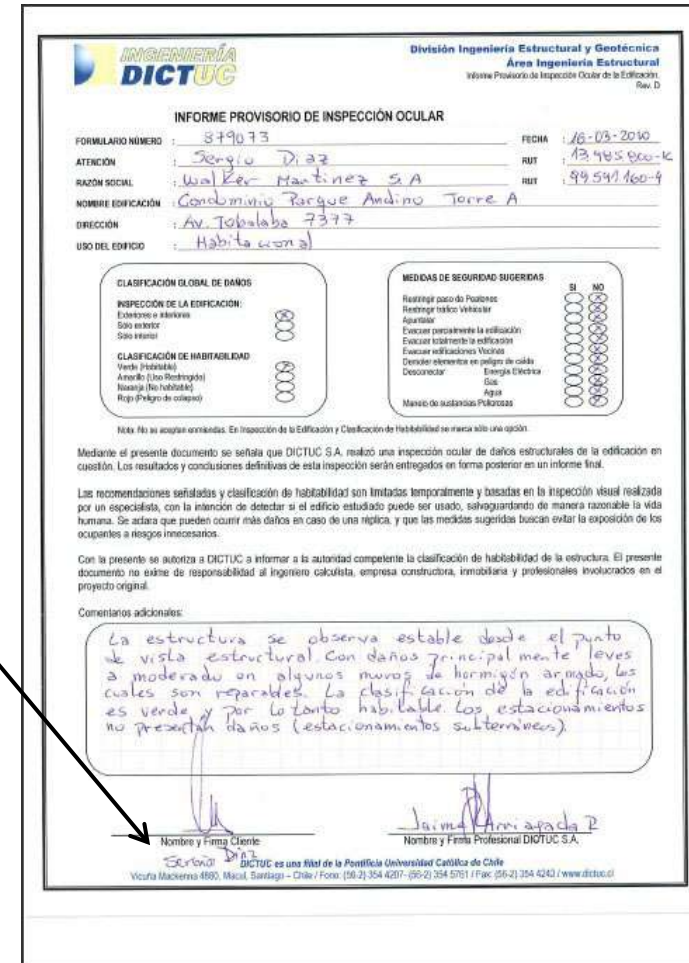 INGENIERÍA
DICTUC
División Ingeniería Estructural y Geotécnica
Área Ingeniería Estructural
Informe Provisorio de Inspección Ocular de la Edificación.
Rev. D
INFORME PROVISORIO DE INSPECCIÓN OCULAR
FORMULARIO NÚMERO : 879073 FECHA : 16-03-2010
ATENCIÓN : Sergio Diaz RUT : 13.485.800-K
RAZÓN SOCIAL : Walker Martinez S.A RUT : 99.541.160-9
NOMBRE EDIFICACIÓN : Condominio Parque Andino Torre A
DIRECCIÓN : Av. Tobalaba 7377
USO DEL EDIFICIO : Habitacional
CLASIFICACIÓN GLOBAL DE DAÑOS
INSPECCIÓN DE LA EDIFICACIÓN:
Exteriores e interiores
Sólo exterior
Sólo interior
CLASIFICACIÓN DE HABITABILIDAD
Verde (Habitable)
Amarillo (Uso Restringido)
Naranja (No habitable)
Rojo (Peligro de colapso)
MEDIDAS DE SEGURIDAD SUGERIDAS
SI NO
Restringir paso de Peatones
Restringir tráfico Vehicular
Apuntalar
Evacuar parcialmente la edificación
Evacuar totalmente la edificación
Evacuar edificaciones Vecinas
Demoler elementos en peligro de caída
Desconectar Energía Eléctrica
Gas
Agua
Manejo de sustancias Peligrosas
Nota: No se aceptan enmiendas. En Inspección de la Edificación y Clasificación de Habitabilidad se marca sólo una opción.
Mediante el presente documento se señala que DICTUC S.A. realizó una inspección ocular de daños estructurales de la edificación en
cuestión. Los resultados y conclusiones definitivas de esta inspección serán entregados en forma posterior en un informe final.
Las recomendaciones señaladas y clasificación de habitabilidad son limitadas temporalmente y basadas en la inspección visual realizada
por un especialista, con la intención de detectar si el edificio estudiado puede ser usado, salvaguardando de manera razonable la vida
humana. Se aclara que pueden ocurrir más daños en caso de una réplica, y que las medidas sugeridas buscan evitar la exposición de los
ocupantes a riesgos innecesarios.
Con la presente se autoriza a DICTUC a informar a la autoridad competente la clasificación de habitabilidad de la estructura. El presente
documento no exime de responsabilidad al ingeniero calculista, empresa constructora, inmobiliaria y profesionales involucrados en el
proyecto original.
Comentarios adicionales:
La estructura se observa estable desde el punto
de vista estructural. Con daños principalmente leves
a moderado en algunos muros de hormigón armado, los
cuales son reparables. La clasificación de la edificación
es verde y por lo tanto habitable. Los estacionamientos
no presentan daños (estacionamientos subterráneos).
Jaime Arriagada R
Nombre y Firma Cliente Nombre y Firma Profesional DICTUC S.A.
Sergio Diaz
DICTUC es una filial de la Pontificia Universidad Católica de Chile
Vicuña Mackenna 4860, Macul, Santiago – Chile / Fono: (56-2) 354 4207- (56-2) 354 5761 / Fax: (56-2) 354 4243 / www.dictuc.cl